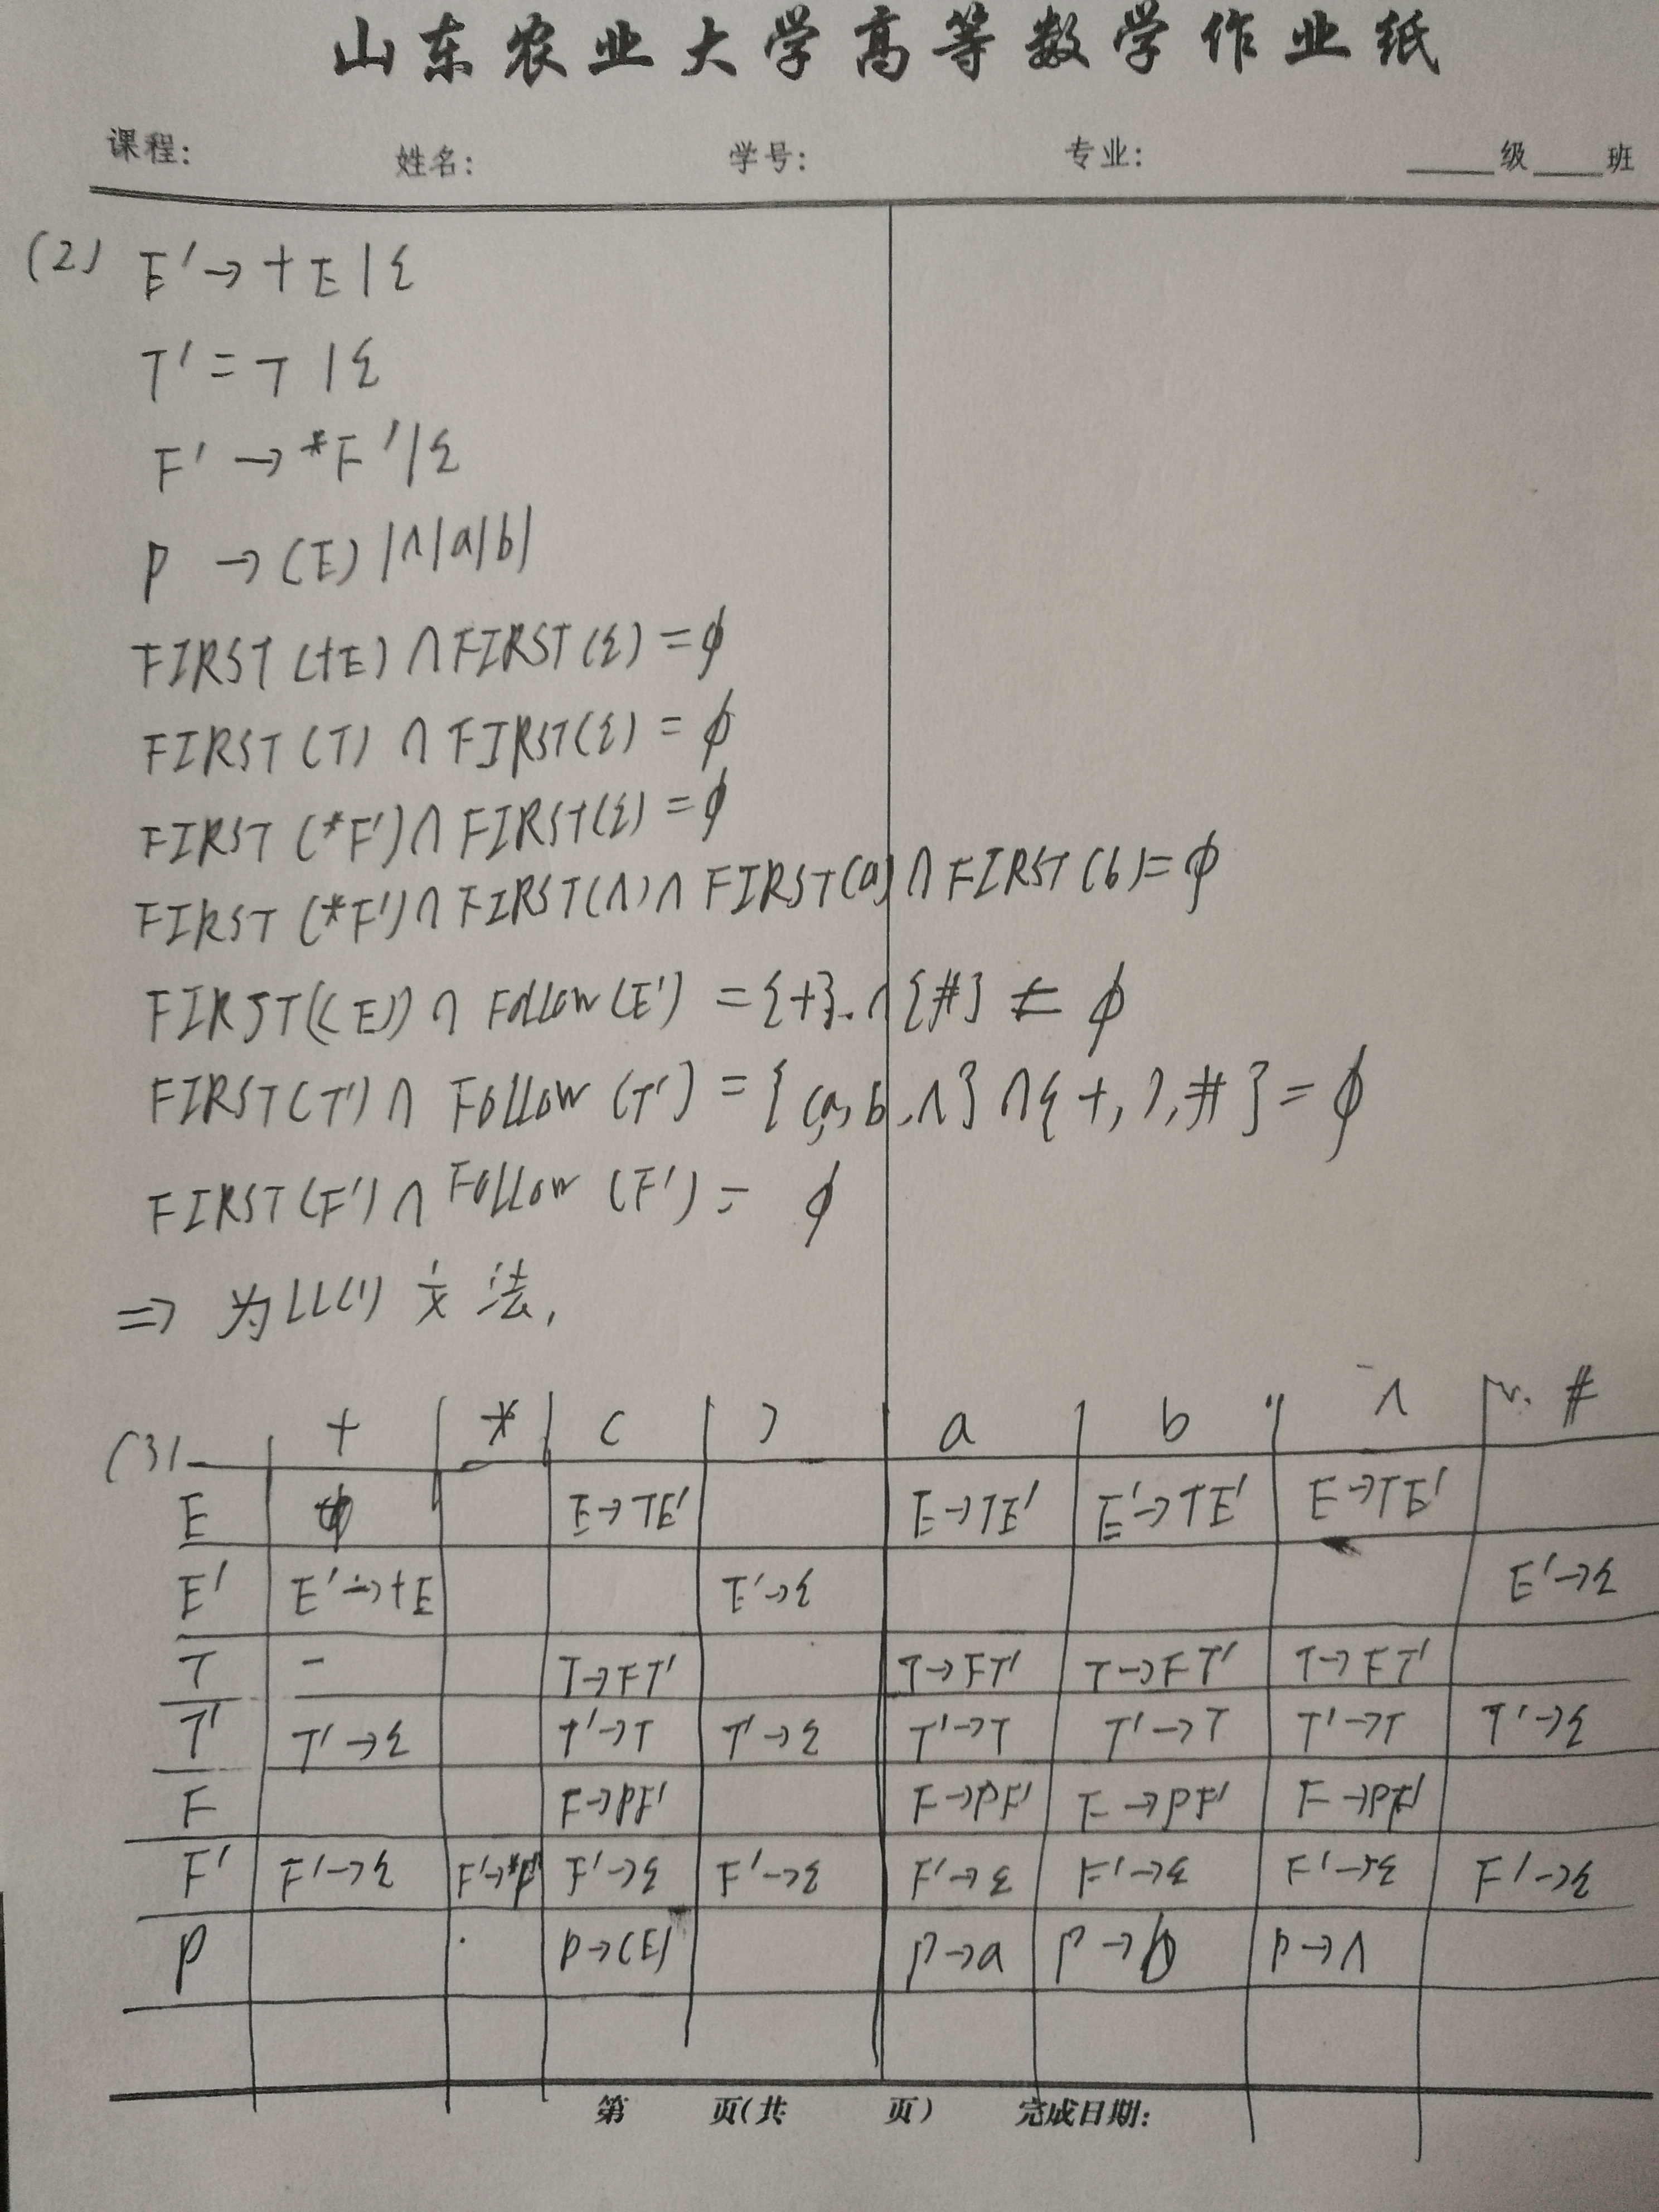 山东农业大学高等数学作业纸
课程: 姓名: 学号: 专业: ____级____班
(2) E'→+E|ε
T'=T|ε
F'→*F'|ε
P→(E)|∧|a|b|
FIRST(+E)∩FIRST(ε)=ϕ
FIRST(T)∩FIRST(ε)=ϕ
FIRST(*F')∩FIRST(ε)=ϕ
FIRST(*F')∩FIRST(∧)∩FIRST(a)∩FIRST(b)=ϕ
FIRST((E))∩Follow(E')={+}∩{#}≠ϕ
FIRST(T')∩Follow(T')={(a,b,∧}∩{+,),#}=ϕ
FIRST(F')∩Follow(F')=ϕ
⇒为LL(1)文法.
(3) + * ( ) a b ∧ #
E E→TE' E→TE' E'→TE' E→TE'
E' E'→+E E'→ε E'→ε
T - T→FT' T→FT' T→FT' T→FT'
T' T'→ε T'→T T'→ε T'→T T'→T T'→T T'→ε
F F→PF' F→PF' F→PF' F→PF'
F' F'→ε F'→*F' F'→ε F'→ε F'→ε F'→ε F'→ε F'→ε
P P→(E) P→a P→b P→∧
第 页(共 页) 完成日期: